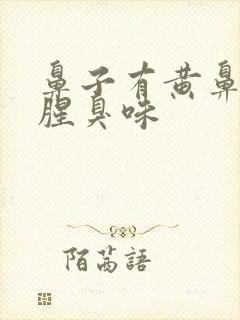 鼻子有黄鼻
腥臭味
陌茗語